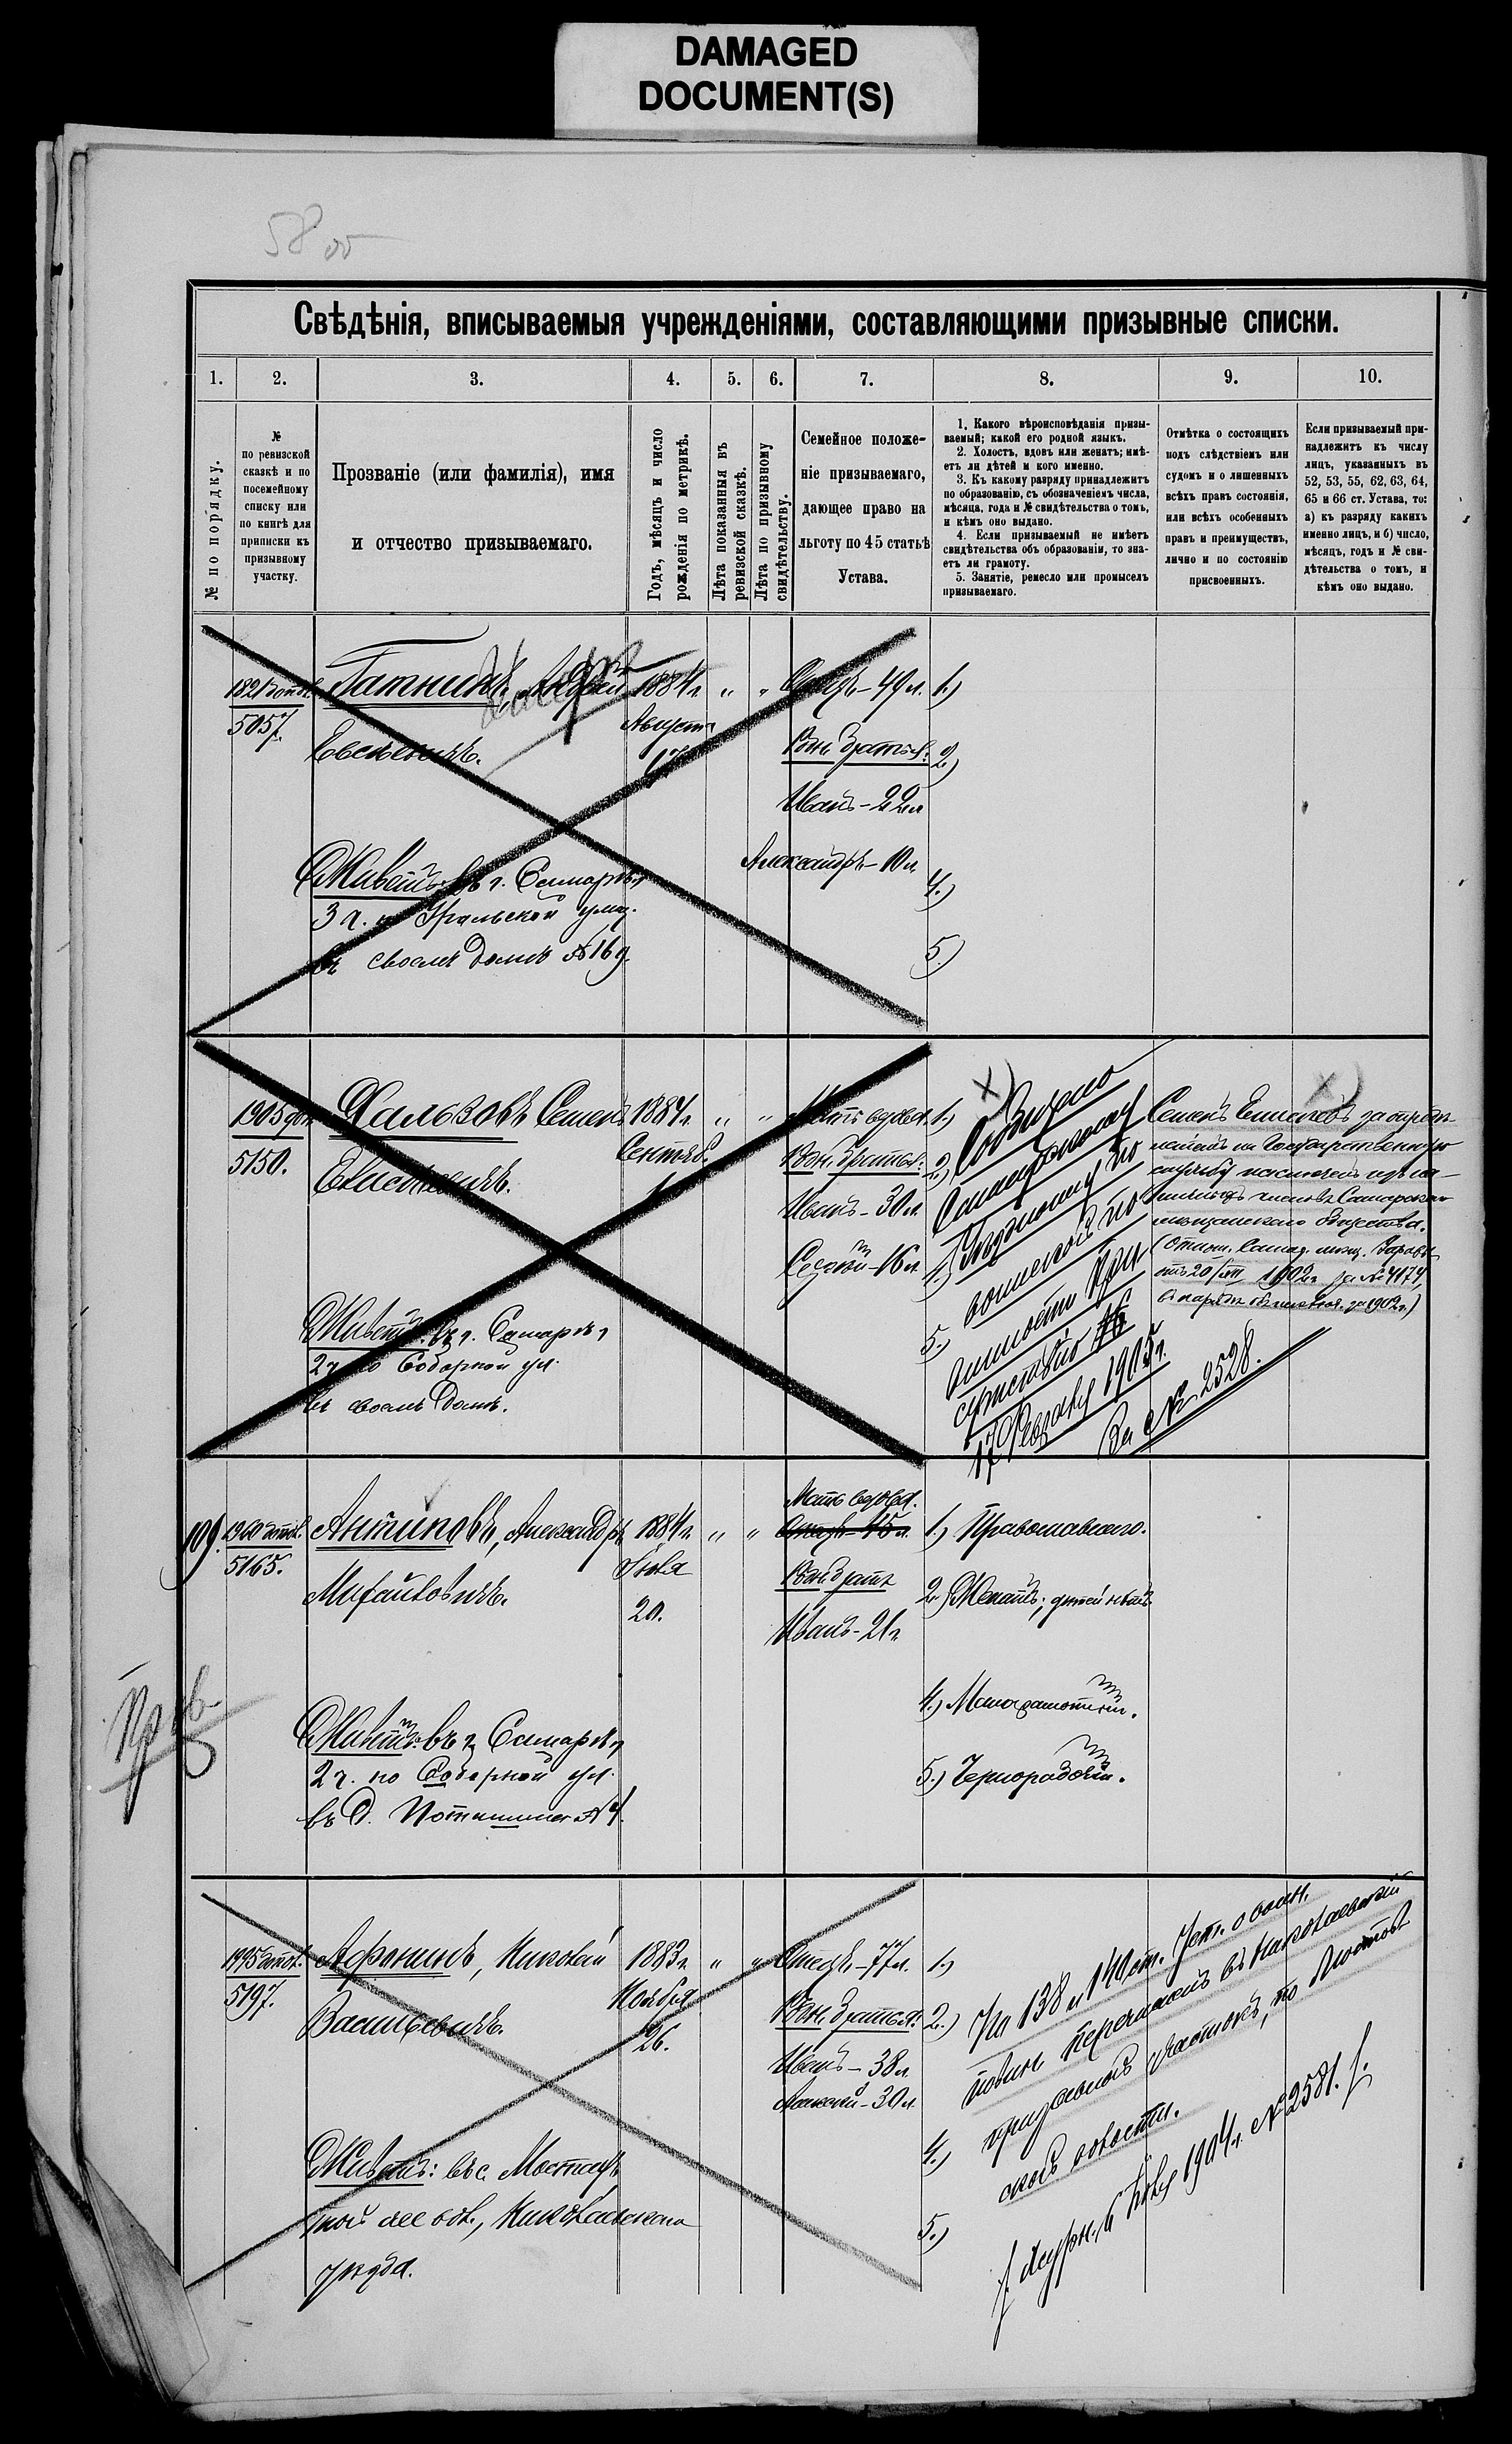 DAMAGED
DOCUMENT(S)
58 об
Свѣдѣнія, вписываемыя учрежденіями, составляющими призывные списки.
1.
2.
3.
4.
5.
6.
7.
8.
9.
10.
№ по порядку.
№
по ревизской
сказкѣ и по
посемейному
списку или
по книгѣ для
приписки къ
призывному
участку.
Прозваніе (или фамилія), имя
и отчество призываемаго.
Годъ, мѣсяцъ и число
рожденія по метрикѣ.
Лѣта показанныя въ
ревизской сказкѣ.
Лѣта по призывному
свидѣтельству.
Семейное положе-
ніе призываемаго,
дающее право на
льготу по 45 статьѣ
Устава.
1. Какого вѣроисповѣданія призы-
ваемый; какой его родной языкъ.
2. Холостъ, вдовъ или женатъ; имѣ-
етъ ли дѣтей и кого именно.
3. Къ какому разряду принадлежитъ
по образованію, съ обозначеніемъ числа,
мѣсяца, года и № свидѣтельства о томъ,
и кѣмъ оно выдано.
4. Если призываемый не имѣетъ
свидѣтельства объ образованіи, то зна-
етъ ли грамоту.
5. Занятіе, ремесло или промыселъ
призываемаго.
Отмѣтка о состоящихъ
подъ слѣдствіемъ или
судомъ и о лишенныхъ
всѣхъ правъ состоянія,
или всѣхъ особенныхъ
правъ и преимуществъ,
лично и по состоянію
присвоенныхъ.
Если призываемый при-
надлежитъ къ числу
лицъ, указанныхъ въ
52, 53, 55, 62, 63, 64,
65 и 66 ст. Устава, то:
а) къ разряду какихъ
именно лицъ, и б) число,
мѣсяцъ, годъ и № сви-
дѣтельства о томъ, и
кѣмъ оно выдано.
5057.
1884 г.
Августа
Отецъ - 49 л.
1.)
Родн. братья:
2.)
Иванъ - 22 л.
Александръ - 10 л.
4.)
5.)
Живетъ: въ г. Самарѣ,
3 ч. по Уральской улиц.
въ своемъ домѣ № 169.
5150.
Семенъ
1884 г.
Сентяб.
1
Мать вдова.
1.)
Родн. братья:
2.)
Иванъ - 30 л.
Сергѣй - 16 л.
4.)
5.)
Живетъ: въ г. Самарѣ,
2 ч. по Соборной ул.
въ своемъ домѣ.
Сообщено
Самарскому
Уѣздному по
воинской по
винности При
сутствію
17 Февраля 1905 г.
За № 2528.
на Государственную
службу исключенъ изъ
членовъ Самарскаго
мѣщанскаго общества.
1902 г. за № 4174,
109.
5165.
Антиповъ, Александръ
Михайловичъ.
1884 г.
Іюля
20.
Мать вдова.
Родн. братъ
Иванъ - 21 г.
1.) Православнаго.
2.) Женатъ; дѣтей нѣтъ.
4.) Малограмотный.
5.) Чернорабочій.
Живетъ: въ г. Самарѣ,
2 ч. по Соборной ул.
5197.
Афонинъ, Николай
Васильевичъ.
1883 г.
Ноября
26.
Отецъ - 77 л.
1.)
Родн. братья:
2.)
Иванъ - 38 л.
Алексѣй - 30 л.
4.)
5.)
Живетъ:
Николаевскаго
уѣзда.
По 138 и 140 ст. Уст. о воин.
повин. перечисленъ въ Николаевскій
призывной участокъ, по
ской волости.
1904 г. № 2581.